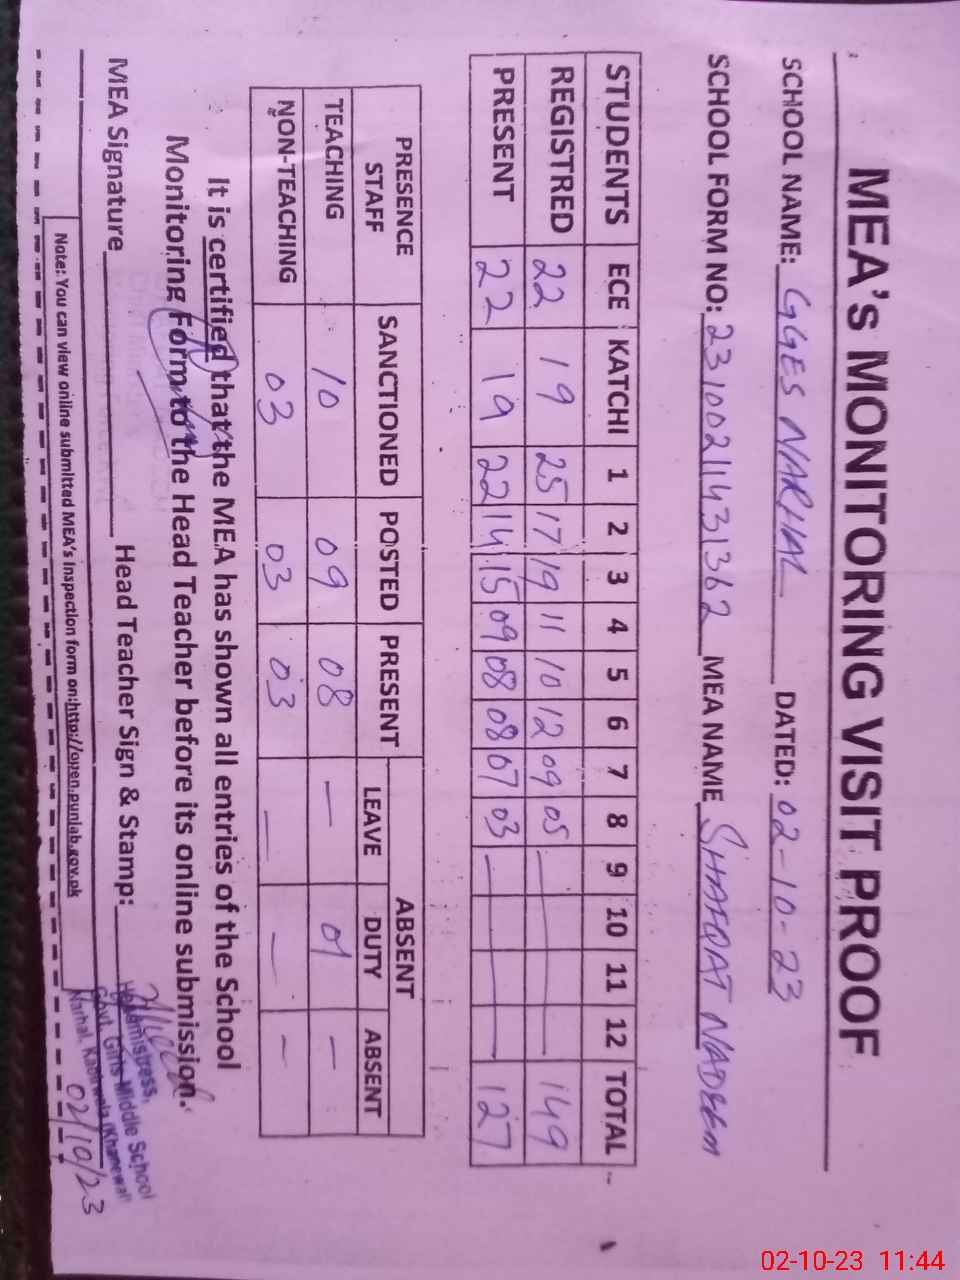 MEA's MONITORING VISIT PROOF
SCHOOL NAME: GGES NARHAL DATED: 02-10-23
SCHOOL FORM NO: 23100211431362 MEA NAME SHAFQAT NADEEM
STUDENTS ECE KATCHI 1 2 3 4 5 6 7 8 9 10 11 12 TOTAL
REGISTRED 22 19 25 17 19 11 10 12 09 05 — 149
PRESENT 22 19 22 14 15 09 08 08 07 03 — 127
PRESENCE STAFF SANCTIONED POSTED PRESENT ABSENT
LEAVE DUTY ABSENT
TEACHING 10 09 08 — 01 —
NON-TEACHING 03 03 03 — — —
It is certified that the MEA has shown all entries of the School
Monitoring Form to the Head Teacher before its online submission.
MEA Signature Head Teacher Sign & Stamp:
Headmistress,
Govt. Girls Middle School
Narhal, Kabirwala (Khanewal)
02/10/23
Note: You can view online submitted MEA's inspection form on:http://open.punjab.gov.pk
02-10-23 11:44